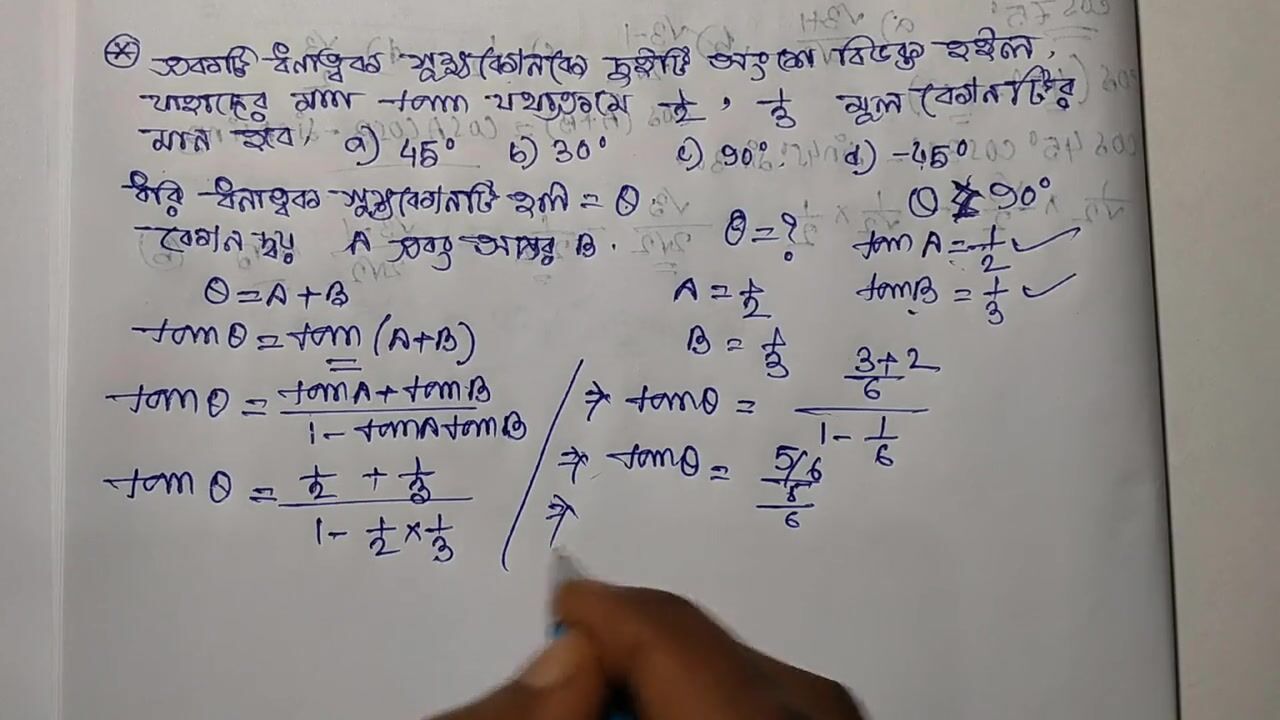 একটি ধনাত্মক সূক্ষ্মকোণকে দুইটি অংশে বিভক্ত হইল,
যাহাদের মান tan যথাক্রমে 1/2, 1/3 মূল কোণটির
মান হবে, a) 45° b) 30° c) 90° d) -45°
ধরি ধনাত্মক সূক্ষ্মকোণটি হল = θ θ 90°
কোণ দ্বয় A এবং আর B. θ = ? tan A = 1/2 ✓
θ = A + B A = 1/2 tan B = 1/3 ✓
tan θ = tan (A+B) B = 1/3
tan θ = (tan A + tan B)/(1 - tan A tan B)
tan θ = (1/2 + 1/3)/(1 - 1/2 × 1/3)
⇒ tan θ = ((3+2)/6)/(1 - 1/6)
⇒ tan θ = (5/6)/(5/6)
⇒